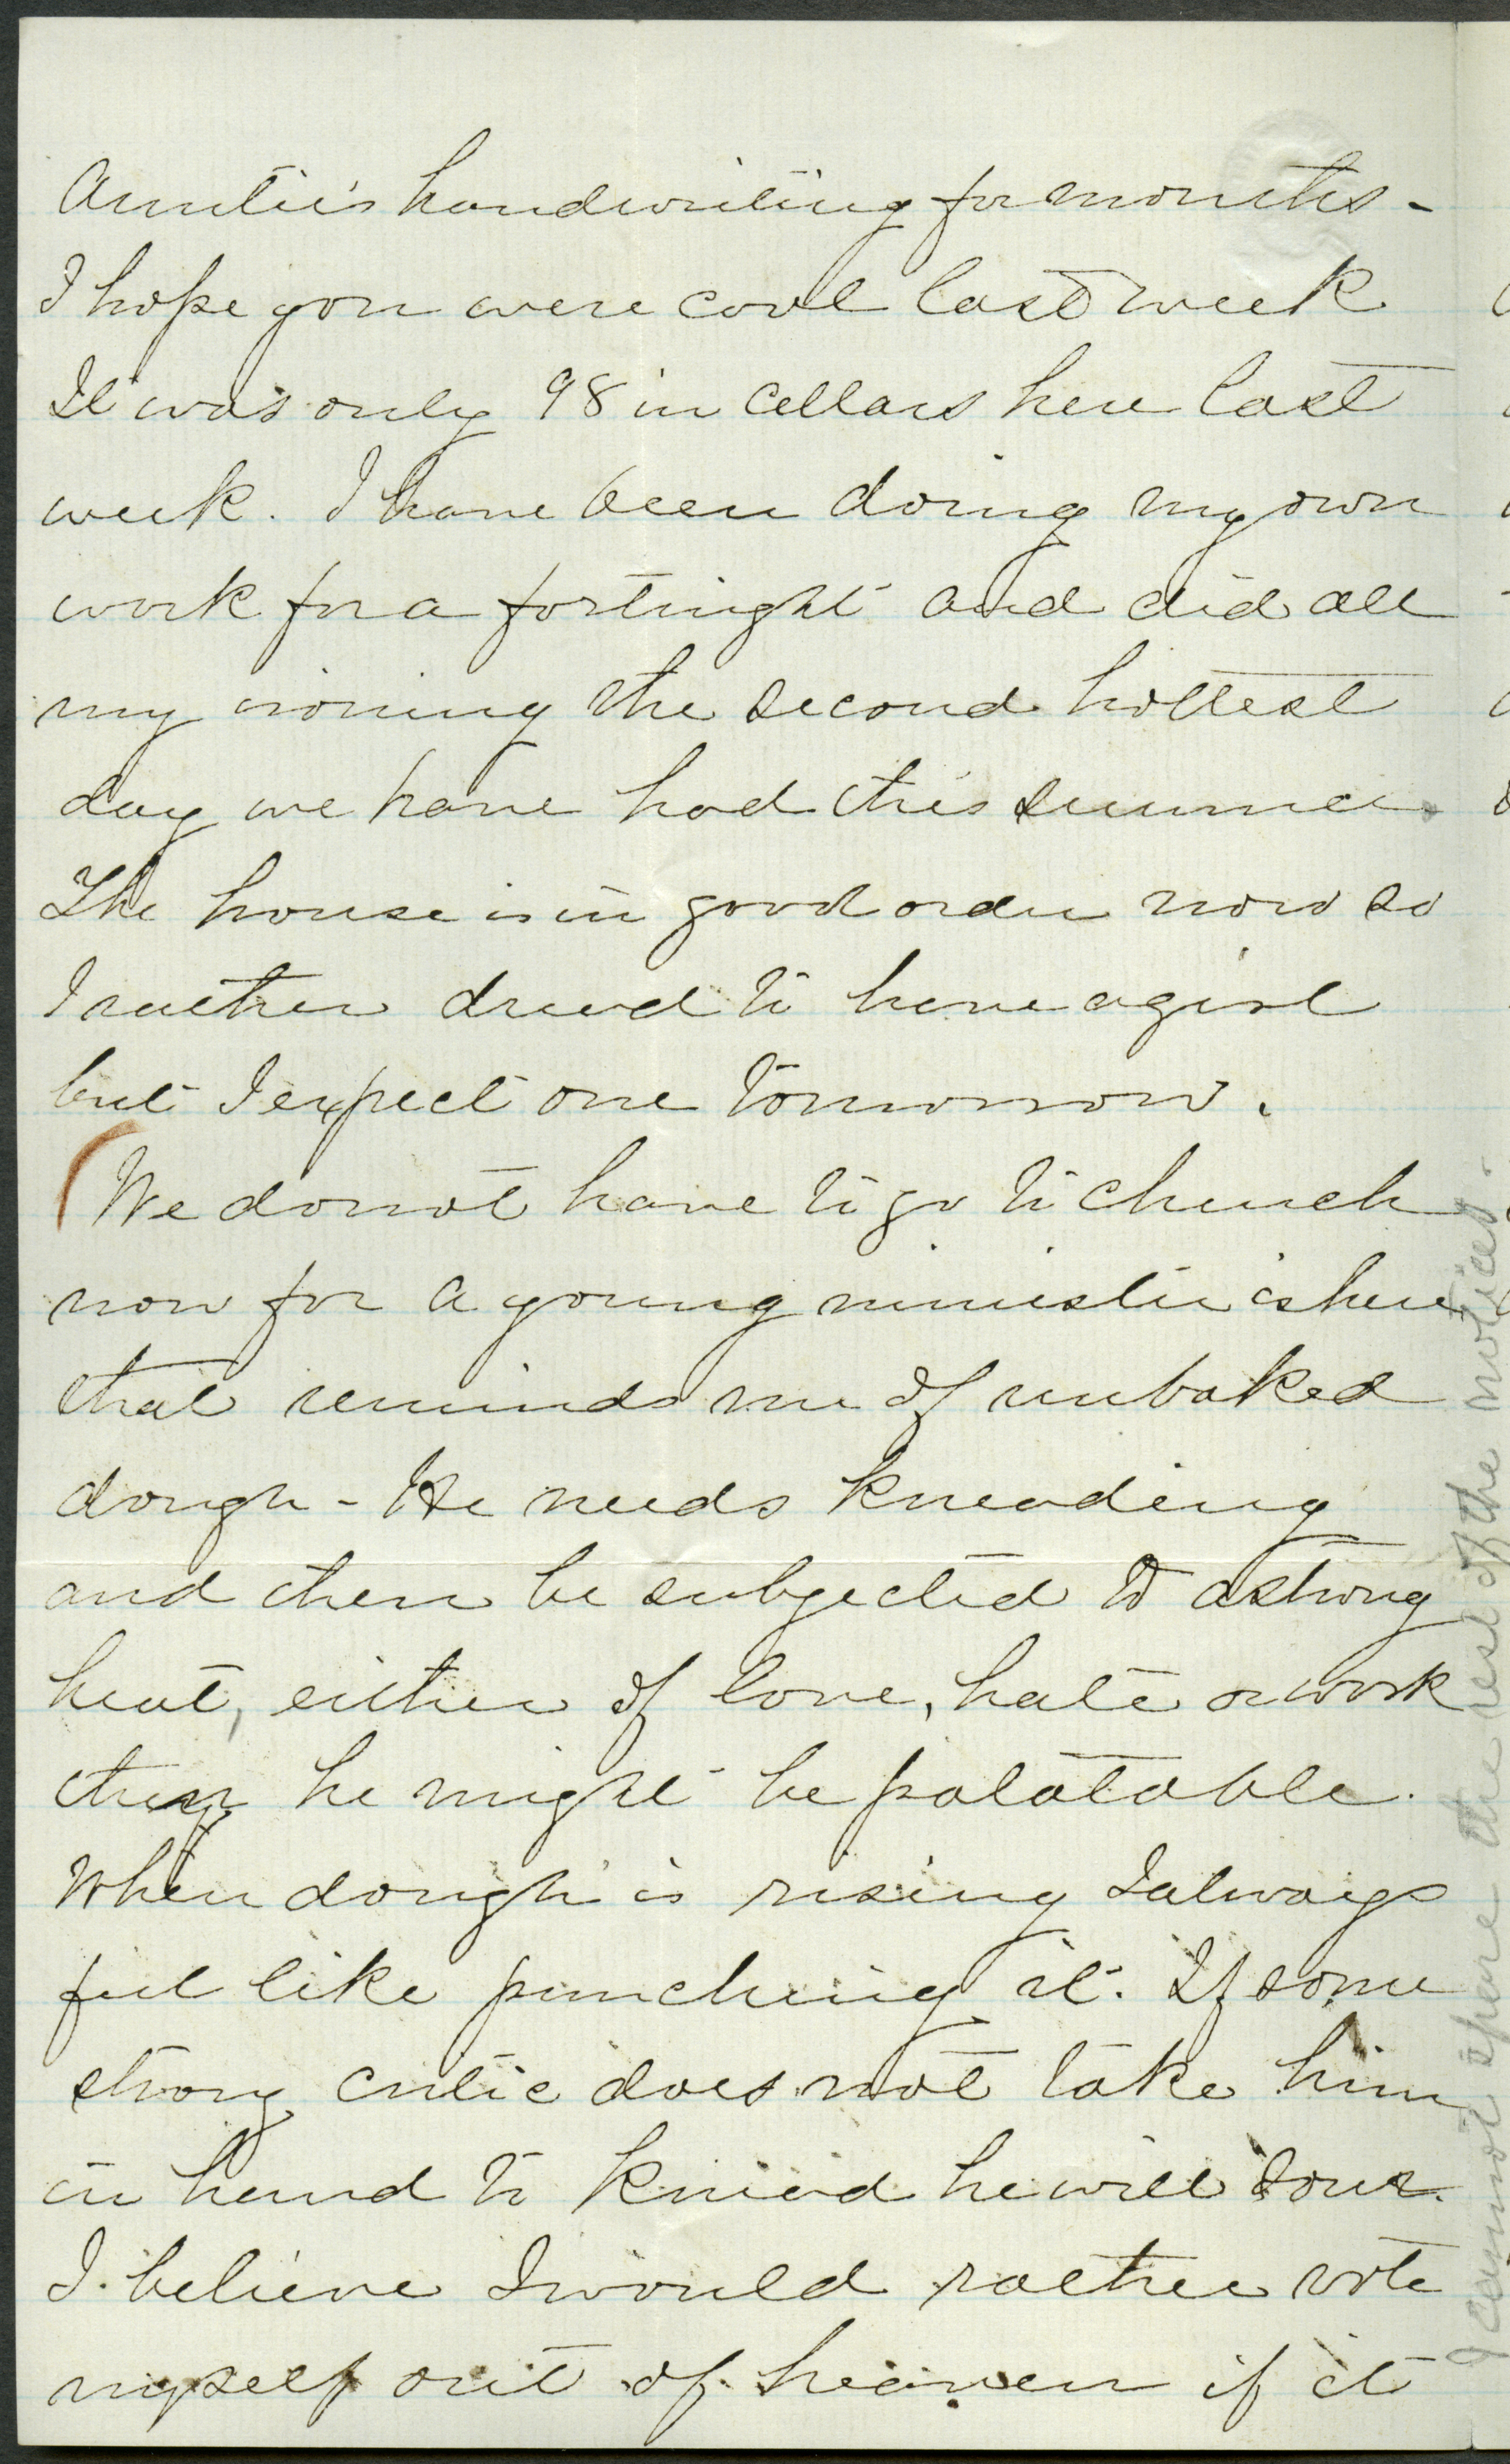 Auntie's handwriting for months -
I hope you were cool last week
It was only 98 in cellars here last
week. I have been doing my own
work for a fortnight and did all
my ironing the second hottest
day we have had this summer.
The house is in good order now so
I rather dread to have a girl
but I expect one tomorrow.
(We do not have to go to church
now for a young minister is here
that reminds me of unbaked
dough - He needs kneading
and then be subjected to a strong
heat, either of love, hate or work
then he might be palatable.
When dough is rising I always
feel like punching it. If some
strong critic does not take him
in hand to knead he will sour.
I believe I would rather vote
myself out of heaven if it
I cannot spare the rest of the notices.